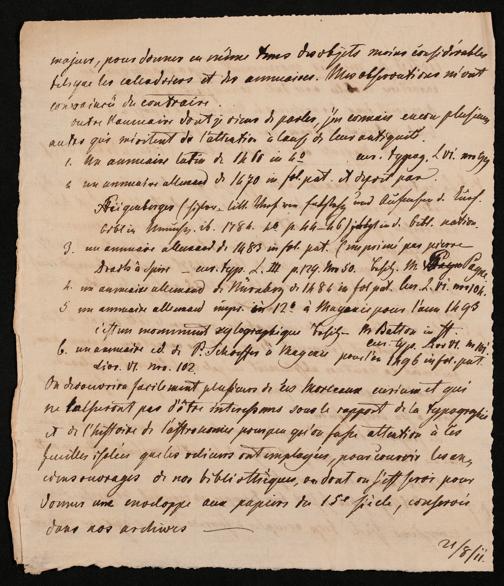 majeurs, pour donner en même tems des objets moins considérables
tels que les calendriers et des annuaires. Mes observations m'ont
convaincu du contraire.
outre l'annuaire dont je viens de parler, j'en connais encore plusieurs
autres qui méritent de l'attention à cause de leur antiquité.
1. Un annuaire latin de 1460 in 4o
2. un annuaire allemand de 1470 in fol. pat. et deposé par
1784. 4o p. 44-46) bibl. nation.
3. un annuaire allemand de 1483 in fol. pat. (imprimé par pierre
Drach à Spire — typ. L. III. p. 124. nro 50. M. Payne
4. un annuaire allemand de Nuremberg de 1484 in fol. pat. L. VI. nro 104.
5. un annuaire allemand impr. in 12o à Mayence pour l'an 1493
c'est un monument xylographique
6. un annuaire al. de P. Schoeffer à Mayence pour l'an 1496 in fol. pat.
Livr. VI. nro. 102.
On decouvrira facilement plusieurs de ces morceaux curieux et qui
ne laisseront pas d'être interessans sous le rapport de la typographie
et de l'histoire de l'astronomie pourvu qu'on fasse attention à ces
feuilles isolées que les relieurs ont employées, pour couvrir les an-
ciens ouvrages de nos bibliothèques, ou dont on s'est servis pour
donner une enveloppe aux papiers du 15e siècle, conservés
dans nos archives —
21/8/11.